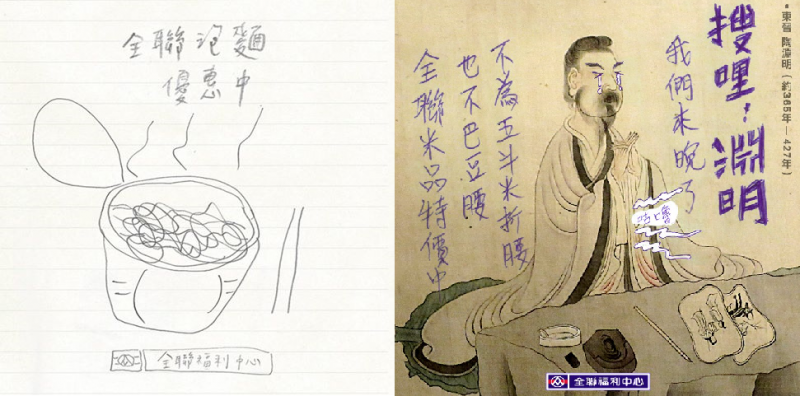 全聯泡麵
優惠中
全聯福利中心
•東晉 陶淵明（約365年—427年）
搜哩！淵明
我們來晚了
不為五斗米折腰
也不巴豆腰
全聯米品特價中
咕嚕
全聯福利中心